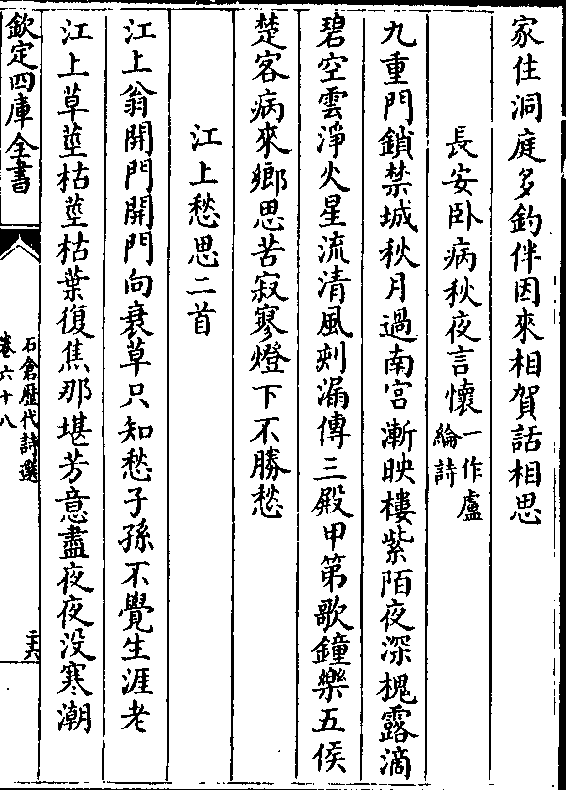 家住洞庭多釣伴因來相賀話相思
長安卧病秋夜言懷一作盧綸詩
九重門鎖禁城秋月過南宫漸映樓紫陌夜深槐露滴
碧空雲淨火星流清風剡漏傳三殿甲第歌鐘樂五侯
楚客病來鄉思苦寂寥燈下不勝愁
江上愁思二首
江上翁開門開門向衰草只知愁子孫不覺生涯老
江上草莖枯莖枯葉復焦那堪芳意盡夜夜没寒潮
欽定四庫全書
石倉歷代詩選
卷六十八
二十六